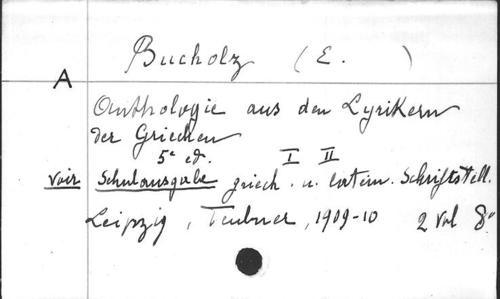 Bucholz (E. )
A
Anthologie aus den Lyrikern
der Griechen
5e ed. I II
voir Schulausgabe griech. u. latein. Schriftstell.
Leipzig, Teubner, 1909-10 2 vol 8°